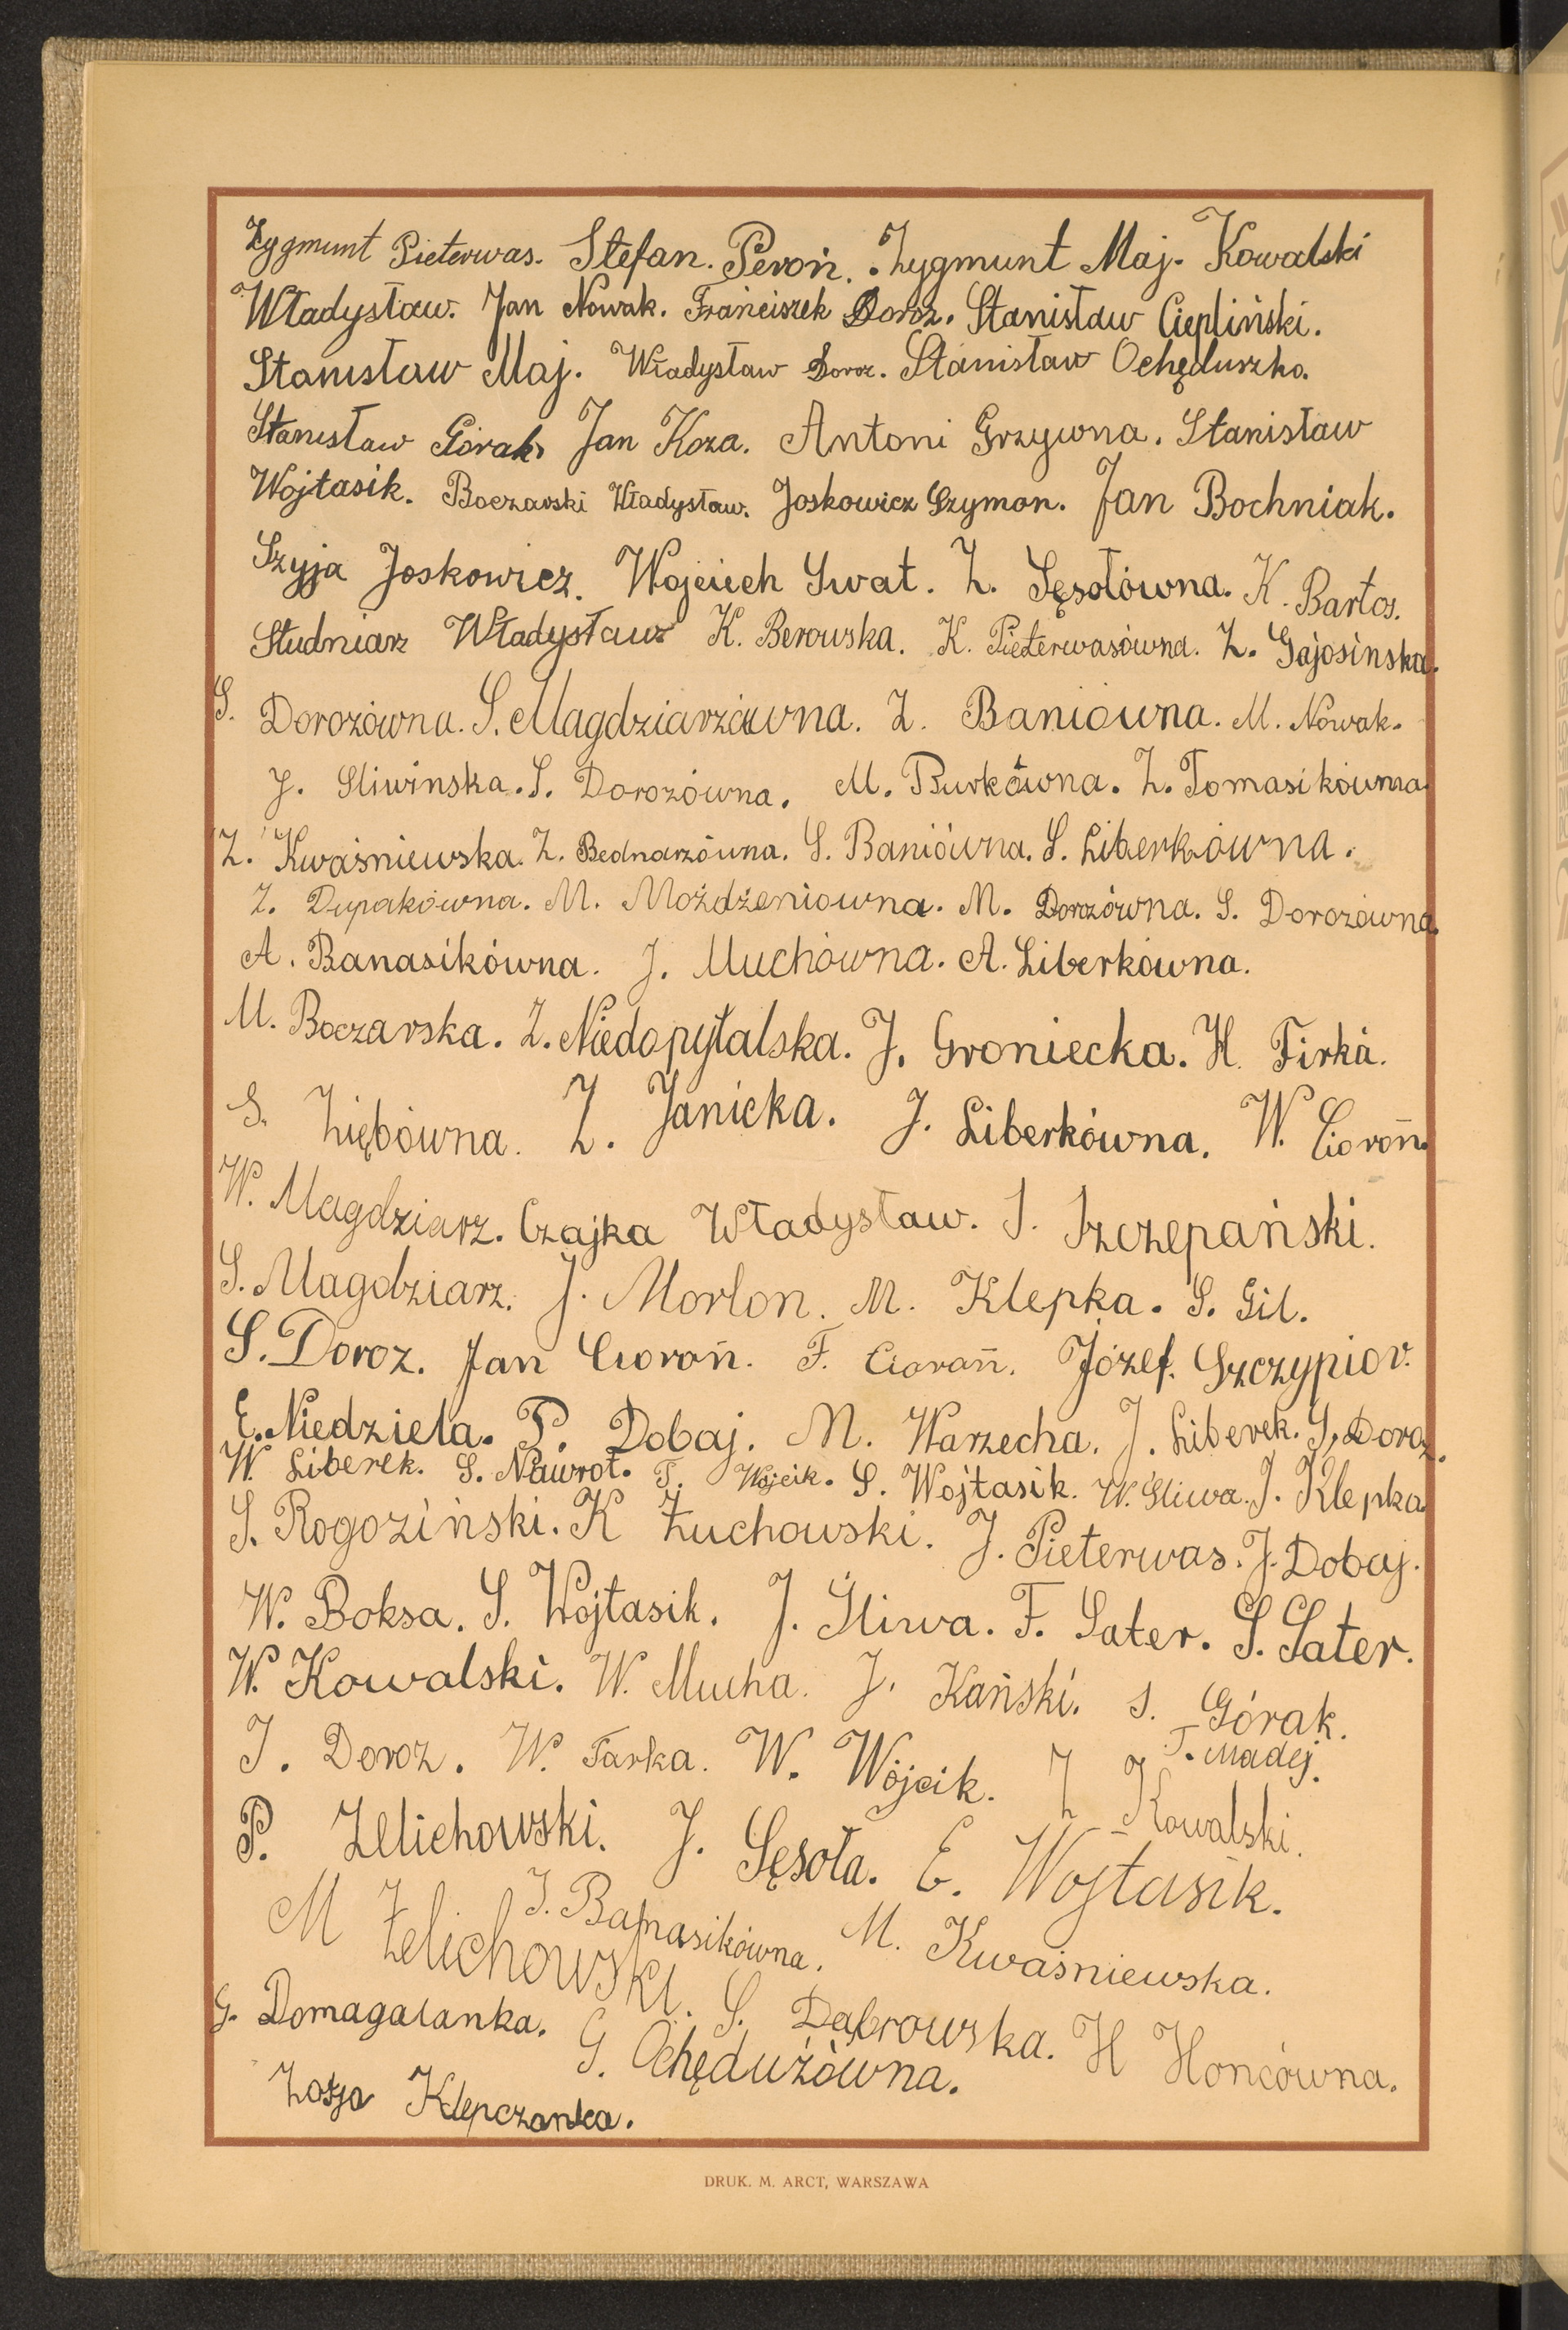 Zygmunt Pieterwas. Stefan. Peroń. Zygmunt Maj. Kowalski
Władysław. Jan Nowak. Franciszek Doroz. Stanisław Ciepliński.
Stanisław Maj. Władysław Doroz. Stanisław Ochęduszko.
Stanisław Górak. Jan Koza. Antoni Grzywna. Stanisław
Wojtasik. Boczarski Władysław. Joskowicz Szymon. Jan Bochniak.
Szyja Joskowicz. Wojciech Swat. Z. Sęsołówna. K. Bartos.
Studniarz Władysław K. Berowska. K. Pieterwasówna. Z. Gajosinska.
S. Dorozówna. S. Magdziarzówna. Z. Baniówna. M. Nowak.
J. Sliwinska. S. Dorozówna. M. Burkówna. Z. Tomasikówna.
Z. Kwaśniewska. Z. Bednarzówna. S. Baniówna. S. Liberkówna.
Z. Dupakówna. M. Móżdżeniówna. M. Dorozówna. S. Dorozówna.
A. Banasikówna. J. Muchówna. A. Liberkówna.
M. Boczarska. Z. Niedopytalska. J. Groniecka. H. Firka.
S. Ziębówna. Z. Janicka. J. Liberkówna. W. Cioroń.
W. Magdziarz. Czajka Władysław. S. Szczepański.
S. Magdziarz. J. Morlon. M. Klepka. S. Gil.
S. Doroz. Jan Cioroń. F. Cioroń. Józef. Szczypior.
E. Niedziela. P. Dobaj. M. Warzecha. J. Liberek. S. Doroz.
W. Liberek. S. Nawrot. T. Wójcik. S. Wojtasik. W. Sliwa. J. Klepka.
S. Rogoziński. K Żuchowski. J. Pieterwas. J. Dobaj.
W. Boksa. S. Wojtasik. J. Śliwa. F. Sater. S. Sater.
W. Kowalski. W. Mucha. J. Kański. S. Górak.
J. Doroz. W. Farka. W. Wójcik. T. Madej.
Z Kowalski.
P. Zelichowski. J. Sęsoła. E. Wojtasik.
J. Banasikówna. M. Kwaśniewska.
M Zelichowski. S. Dąbrowska. H Honcówna.
G. Domagalanka. G. Ochędużówna.
Zosja Klepczanka.
DRUK. M. ARCT, WARSZAWA